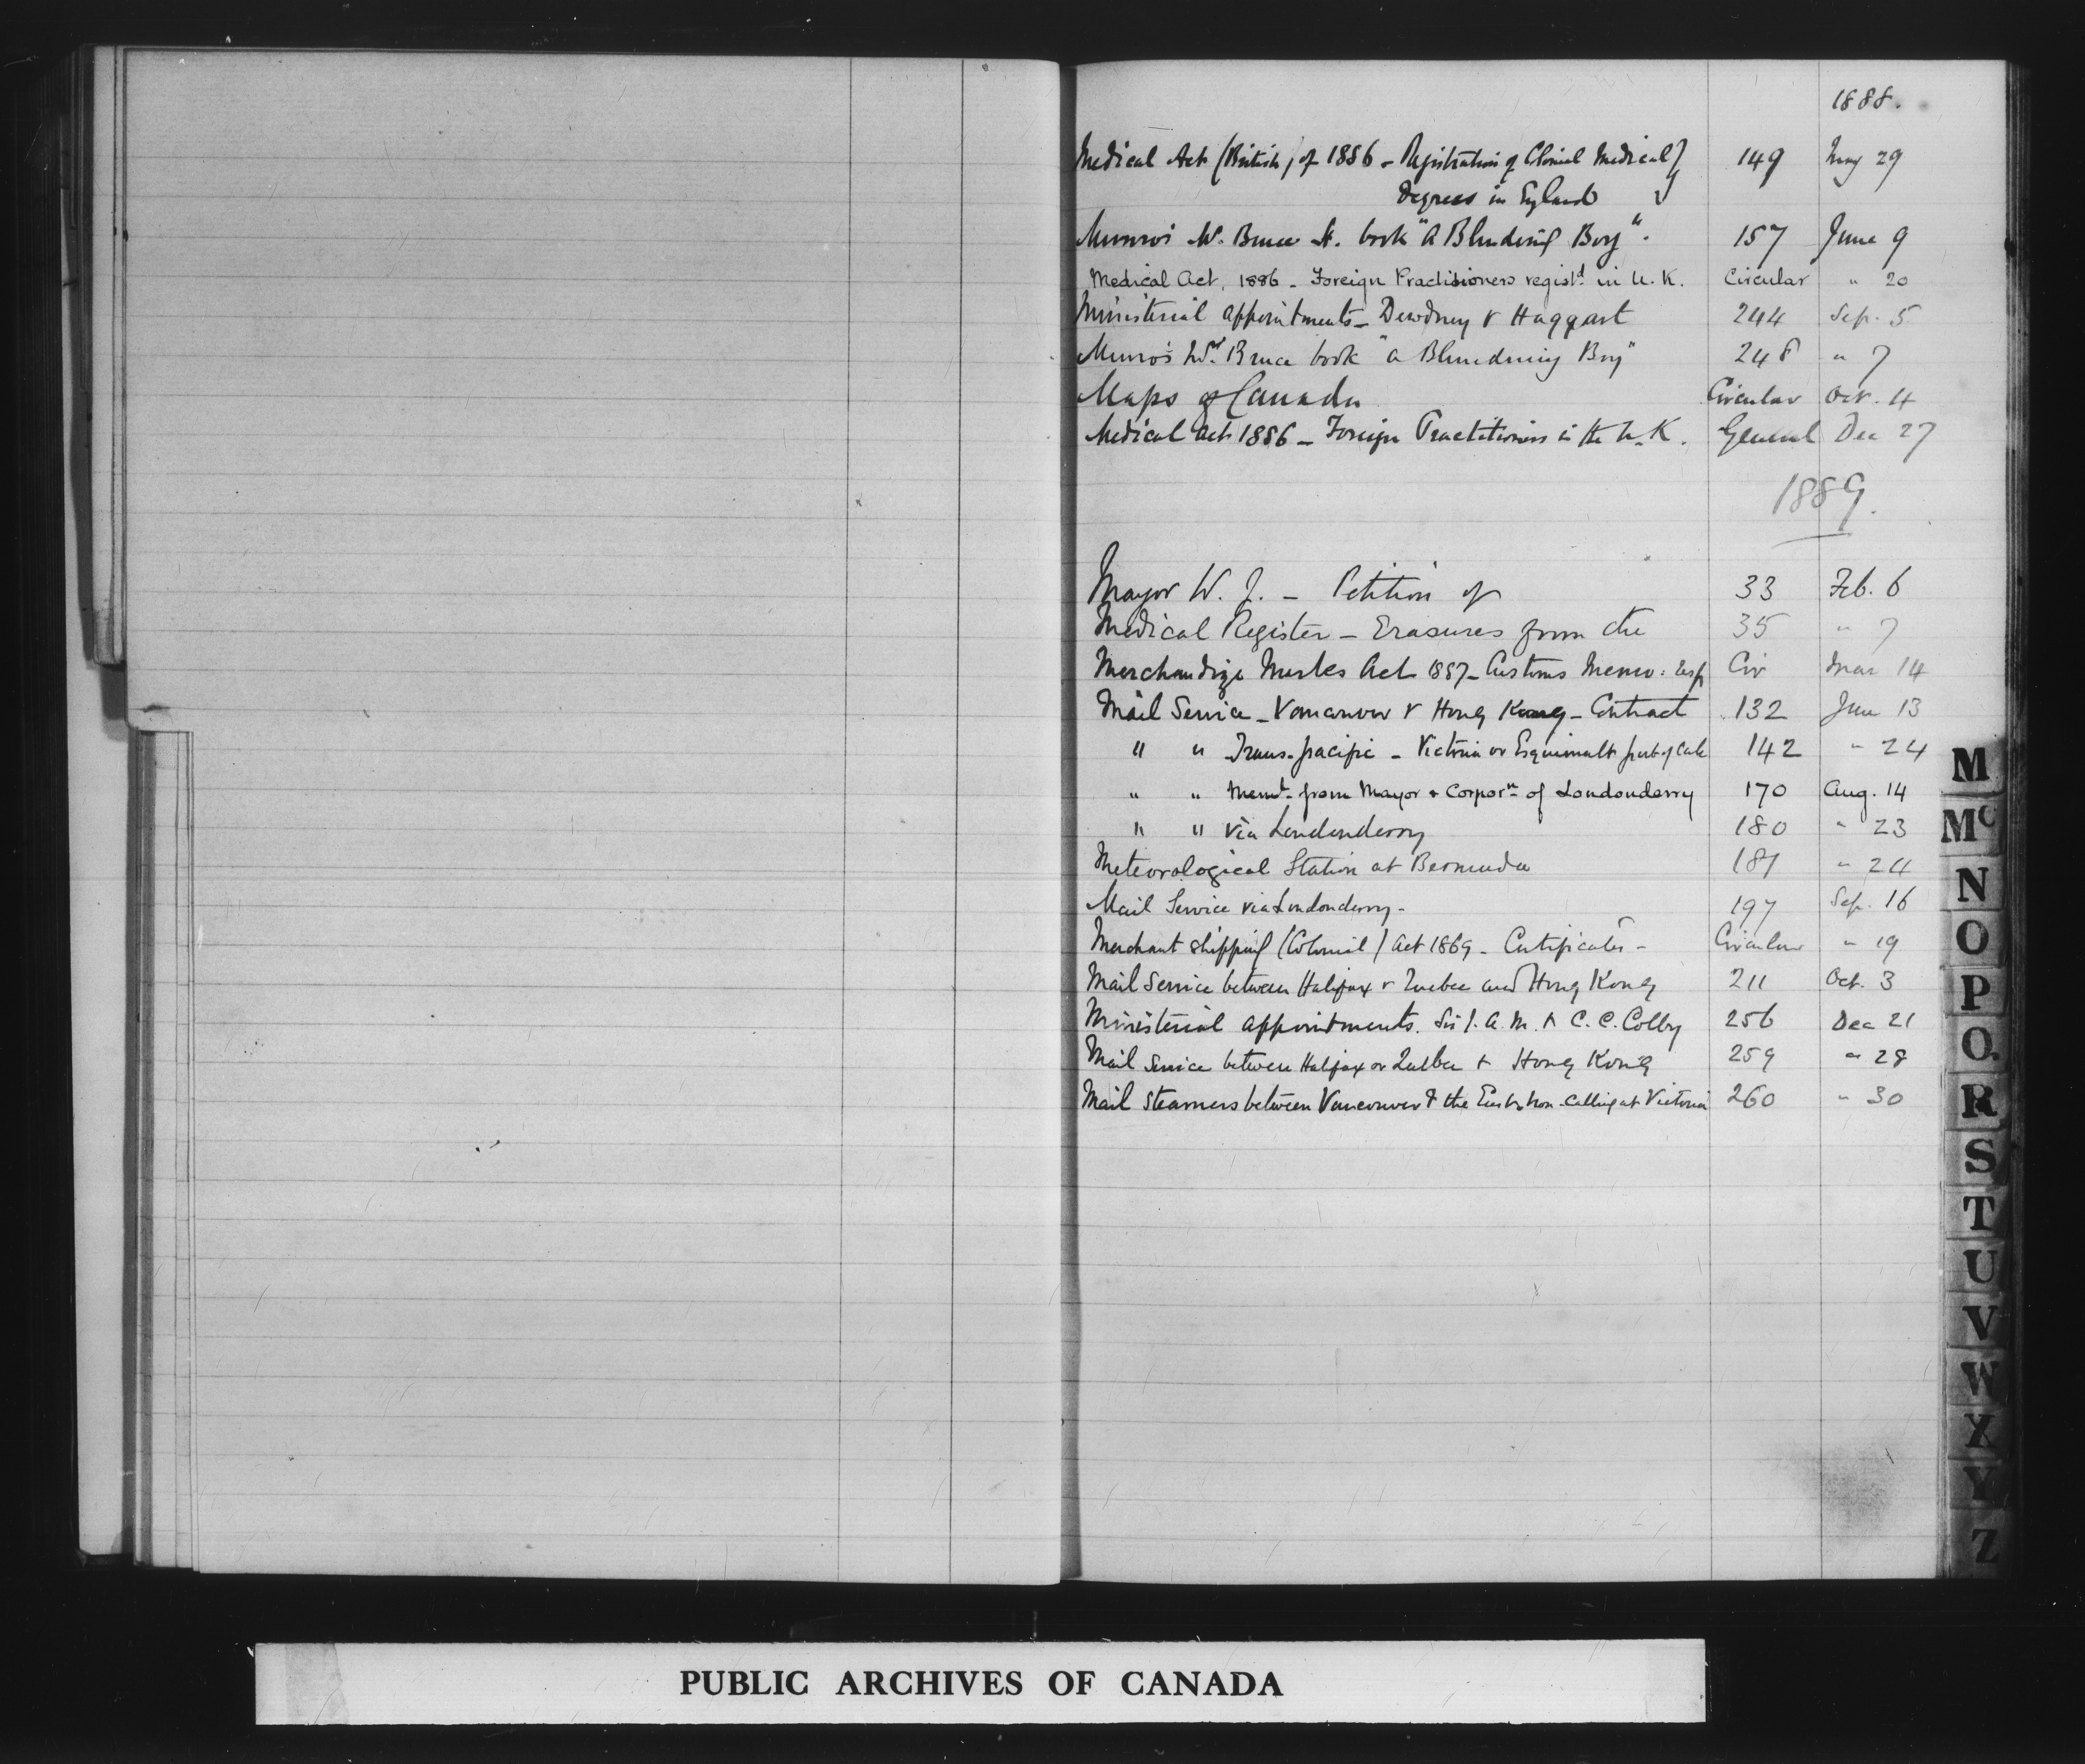 1888.
Medical Act (British) of 1886 - Registration of Colonial Medical 149 May 29
Degrees in England
Munro's W. Bruce book "A Blundering Boy". 157 June 9
Medical Act, 1886 - Foreign Practitioners regist^d in U.K. Circular " 20
Ministerial appointments - Dewdney & Haggart 244 Sep. 5
Munro's W^m Bruce book "a Blundering Boy" 248 " 7
Maps of Canada Circular Oct. 4
Medical Act 1886 - Foreign Practitioners in the U.K. General Dec 27
1889.
Mayor W. J. - Petition of 33 Feb. 6
Medical Register - Erasures from the 35 " 7
Merchandize Marks Act 1887 - Customs Memo: Cir Mar 14
Mail Service - Vancouver & Hong Kong - Contract 132 June 13
" " Trans-pacific - Victoria or Esquimalt port of call 142 " 24
" " Mem^l from Mayor & Corpor^n of Londonderry 170 Aug. 14
" " via Londonderry 180 " 23
Meteorological Station at Bermuda 187 " 24
Mail Service via Londonderry - 197 Sep. 16
Merchant Shipping (Colonial) Act 1869 - Certificates - Circular " 19
Mail Service between Halifax & Quebec and Hong Kong 211 Oct. 3
Ministerial appointments. Sir J. A. M. & C. C. Colby 256 Dec 21
Mail Service between Halifax or Quebec & Hong Kong 259 " 28
Mail Steamers between Vancouver & the East & non-calling at Victoria 260 " 30
M
Mc
N
O
P
Q
R
S
T
U
V
W
X
Y
Z
PUBLIC ARCHIVES OF CANADA